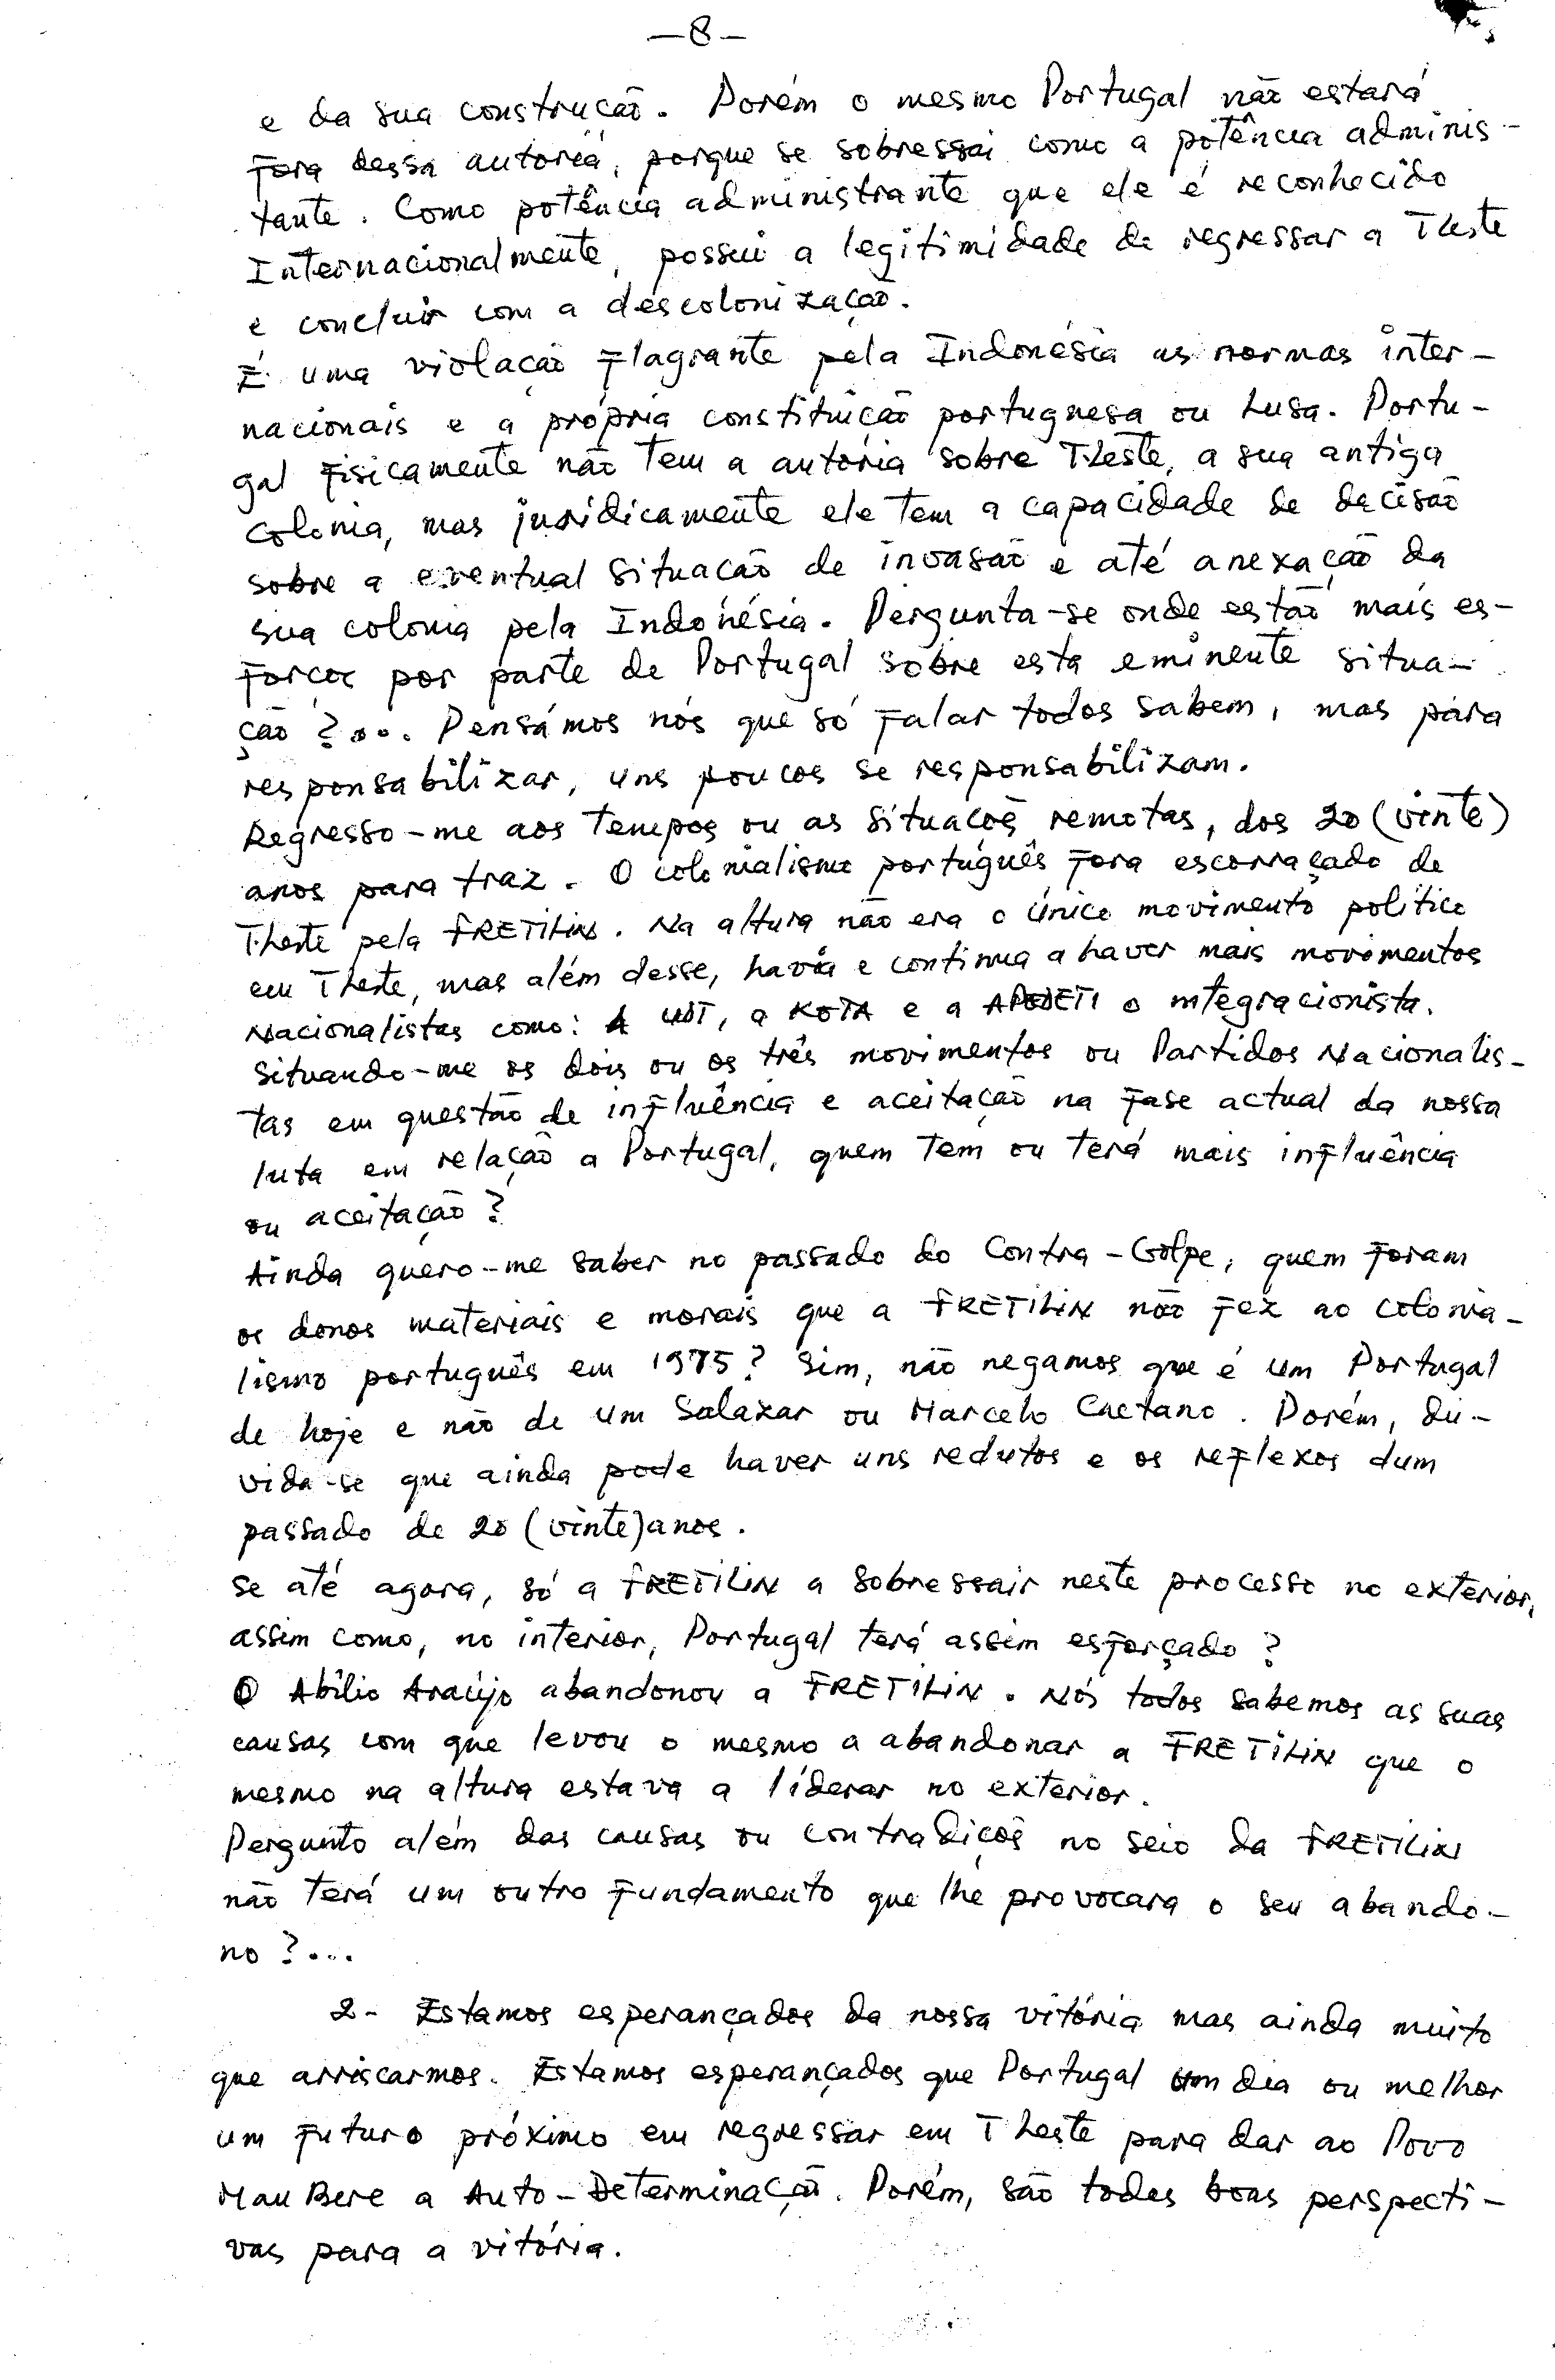 —8—
e da sua construção. Porém o mesmo Portugal não estará
fora dessa autoria, porque se sobressai como a potência adminis-
tante. Como potência administrante que ele é reconhecido
Internacionalmente, possui a legitimidade de regressar a T.Leste
e concluir com a descolonização.
É uma violação flagrante pela Indonésia as normas inter-
nacionais e a própria constituição portuguesa ou Lusa. Portu-
gal fisicamente não tem a autória sobre T.Leste, a sua antiga
colonia, mas juridicamente ele tem a capacidade de decisão
sobre a eventual situação de invasão e até anexação da
sua colonia pela Indonésia. Pergunta-se onde estão mais es-
forços por parte de Portugal sobre esta eminente situa-
ção ?... Pensámos nós que só falar todos sabem, mas para
responsabilizar, uns poucos se responsabilizam.
Regresso-me aos tempos ou as situaçõs remotas, dos 20 (vinte)
anos para traz. O colonialismo português fora escorraçado de
T.Leste pela FRETILIN. Na altura não era o único movimento político
em T Leste, mas além desse, havia e continua a haver mais movimentos
Nacionalistas como: A UDT, a KOTA e a APODETI o integracionista.
Situando-me os dois ou os três movimentos ou Partidos Nacionalis-
tas em questão de influência e aceitação na fase actual da nossa
luta em relação a Portugal, quem tem ou terá mais influência
ou aceitação ?
Ainda quero-me saber no passado do Contra-Golpe, quem foram
os donos materiais e morais que a FRETILIN não fez ao colonia-
lismo português em 1975? Sim, não negamos que é um Portugal
de hoje e não de um Salazar ou Marcelo Caetano. Porém, du-
vida-se que ainda pode haver uns redutos e os reflexos dum
passado de 20 (vinte) anos.
Se até agora, só a FRETILIN a sobressair neste processo no exterior,
assim como, no interior, Portugal terá assim esforçado ?
O Abílio Araújo abandonou a FRETILIN. Nós todos sabemos as suas
causas com que levou o mesmo a abandonar a FRETILIN que o
mesmo na altura estava a líderar no exterior.
Pergunto além das causas ou contradiçõs no seio da FRETILIN
não terá um outro fundamento que lhe provocara o seu abando-
no ?...
2- Estamos esperançados da nossa vitória mas ainda muito
que arriscarmos. Estamos esperançados que Portugal um dia ou melhor
um futuro próximo em regressar em T Leste para dar ao Povo
MauBere a Auto-Determinação. Porém, são todas boas perspecti-
vas para a vitória.